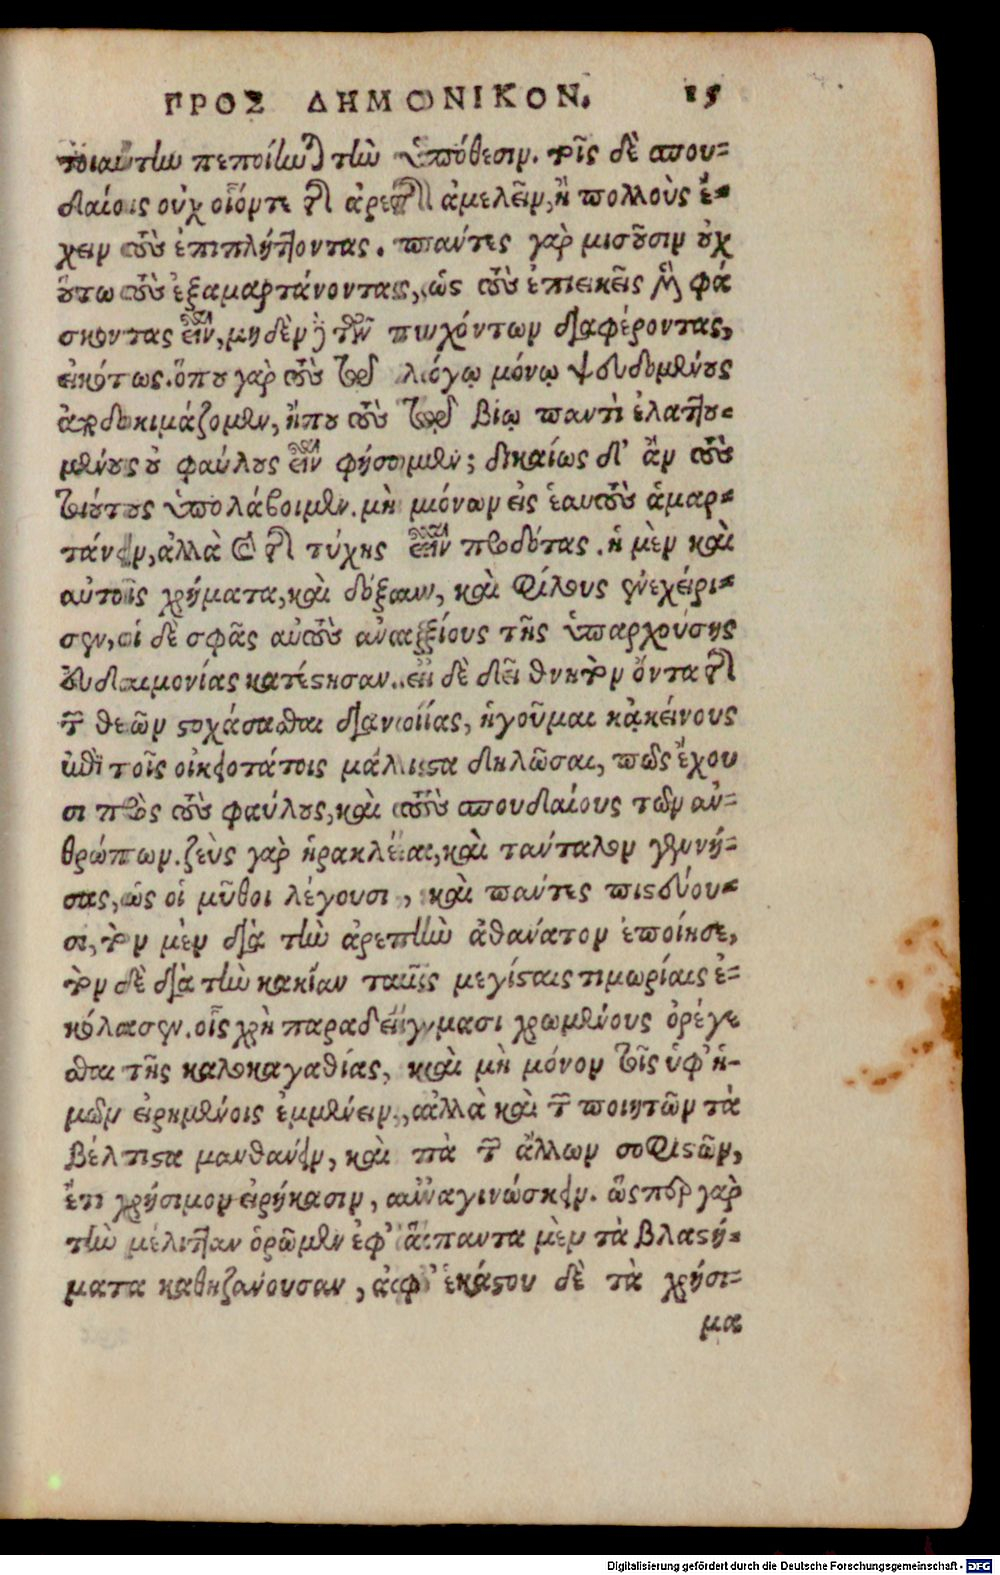 ΠΡΟΣ ΔΗΜΟΝΙΚΟΝ. 15
τοιαύτην πεποίηνται τὴν ὑπόθεσιν. τοῖς δὲ σπου-
δαίοις οὐχ οἷόντε τῆς ἀρετῆς ἀμελεῖν, ἢ πολλοὺς ἔ-
χειν τοὺς ἐπιπλήττοντας. πάντες γὰρ μισοῦσιν οὐχ
οὕτω τοὺς ἐξαμαρτάνοντας, ὡς τοὺς ἐπιεικεῖς μὲν φά
σκοντας εἶναι, μηδὲν δὲ τῶν τυχόντων διαφέροντας,
εἰκότως. ὅπου γὰρ τοὺς τῷ λόγῳ μόνῳ ψευδομένους
ἀποδοκιμάζομεν, ἤπου τοὺς τῷ βίῳ παντὶ ἐλαττου-
μένους οὐ φαύλους εἶναι φήσομεν; δικαίως δ' ἂν τοὺς
τοιούτους ὑπολάβοιμεν. μὴ μόνον εἰς ἑαυτοὺς ἁμαρ-
τάνειν, ἀλλὰ καὶ τῆς τύχης εἶναι προδότας. ἡ μὲν καὶ
αὐτοῖς χρήματα, καὶ δόξαν, καὶ φίλους ἐνεχείρι-
σεν, οἱ δὲ σφᾶς αὐτοὺς ἀναξίους τῆς ὑπαρχούσης
εὐδαιμονίας κατέστησαν. εἰ δὲ δεῖ θνητὸν ὄντα τῆς
τῶν θεῶν στοχάσασθαι διανοίας, ἡγοῦμαι κἀκείνους
ἐπὶ τοῖς οἰκειοτάτοις μάλιστα δηλῶσαι, πῶς ἔχου
σι πρὸς τοὺς φαύλους, καὶ τοὺς σπουδαίους τῶν ἀν-
θρώπων. ζεὺς γὰρ ἡρακλέα, καὶ τάνταλον γεννή-
σας, ὡς οἱ μῦθοι λέγουσι, καὶ πάντες πιστεύου-
σι, τὸν μὲν διὰ τὴν ἀρετὴν ἀθάνατον ἐποίησε,
τὸν δὲ διὰ τὴν κακίαν ταῖς μεγίσταις τιμωρίαις ἐ-
κόλασεν. οἷς χρὴ παραδείγμασι χρωμένους ὀρέγε
σθαι τῆς καλοκαγαθίας, καὶ μὴ μόνον τοῖς ὑφ' ἡ-
μῶν εἰρημένοις ἐμμένειν, ἀλλὰ καὶ τῶν ποιητῶν τὰ
βέλτιστα μανθάνειν, καὶ τὰ τῶν ἄλλων σοφιστῶν,
ἔτι χρήσιμον εἰρήκασιν, ἀναγινώσκειν. ὥσπερ γὰρ
τὴν μέλιτταν ὁρῶμεν ἐφ' ἅπαντα μὲν τὰ βλαστή-
ματα καθιζάνουσαν, ἀφ' ἑκάστου δὲ τὰ χρήσι-
μα
Digitalisierung gefördert durch die Deutsche Forschungsgemeinschaft - DFG